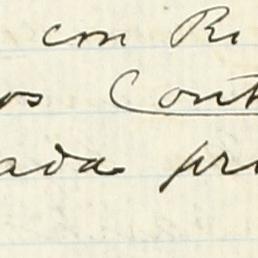 con Ri
os Cont
ada pri